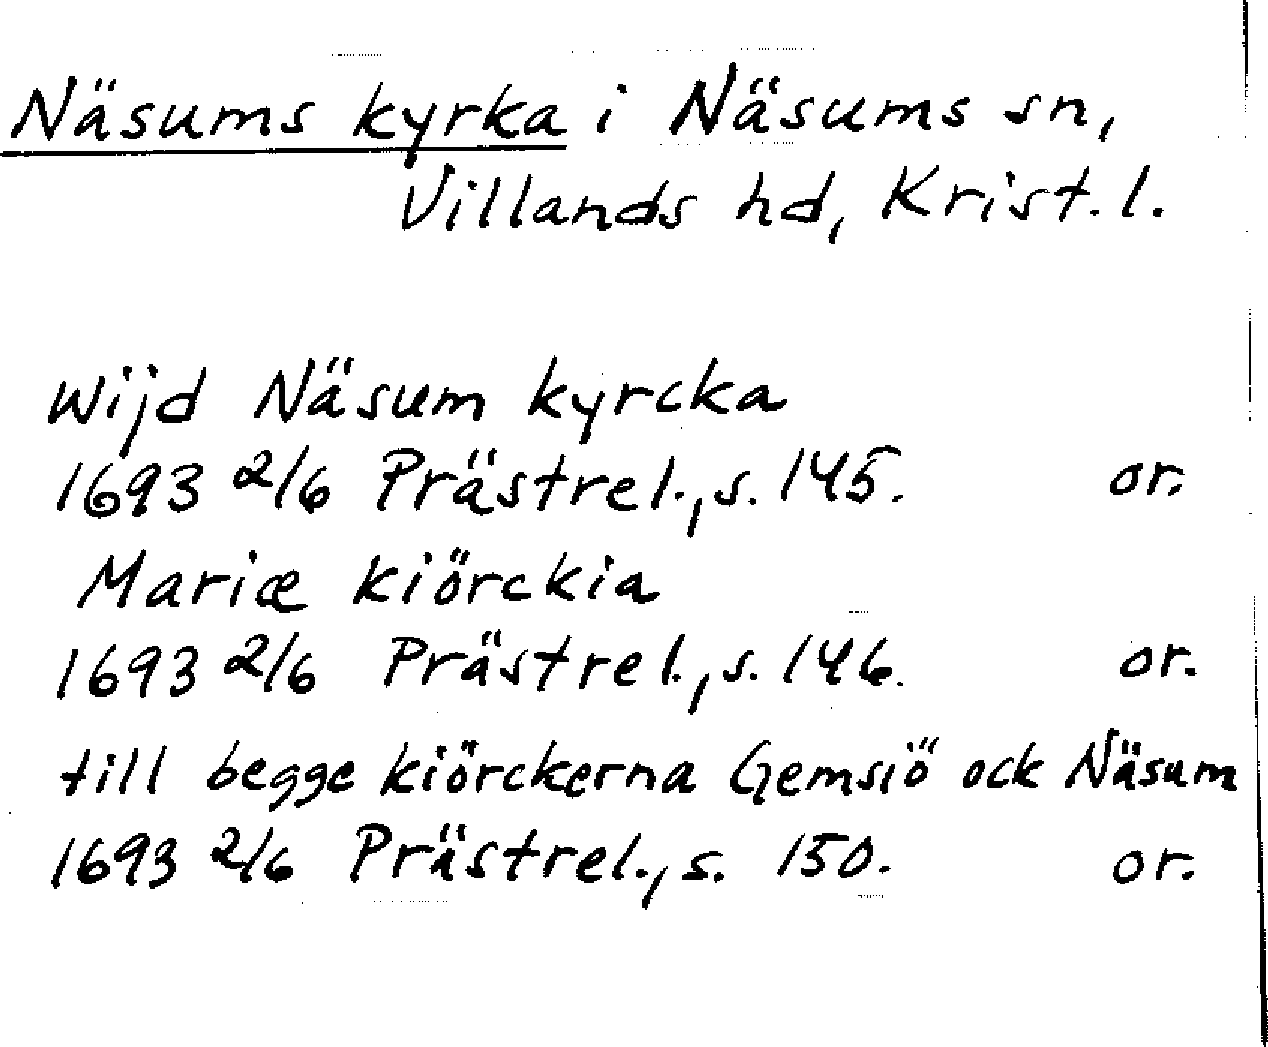 Näsums kyrka i Näsums sn,
Villands hd, Krist. l.
Wijd Näsum kyrcka
1693 2/6 Prästrel., s. 145. or.
Mariæ kiörckia
1693 2/6 Prästrel., s. 146. or.
till begge kiörckerna Gemsiö ock Näsum
1693 2/6 Prästrel., s. 150. or.